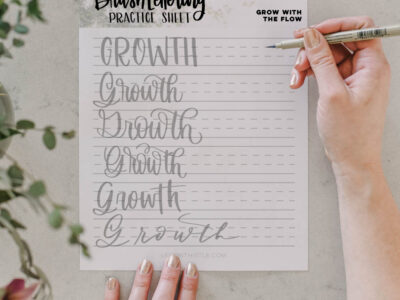 Brush Lettering
PRACTICE SHEET
GROW WITH
THE FLOW
GROWTH
Growth
Growth
Growth
Growth
Growth